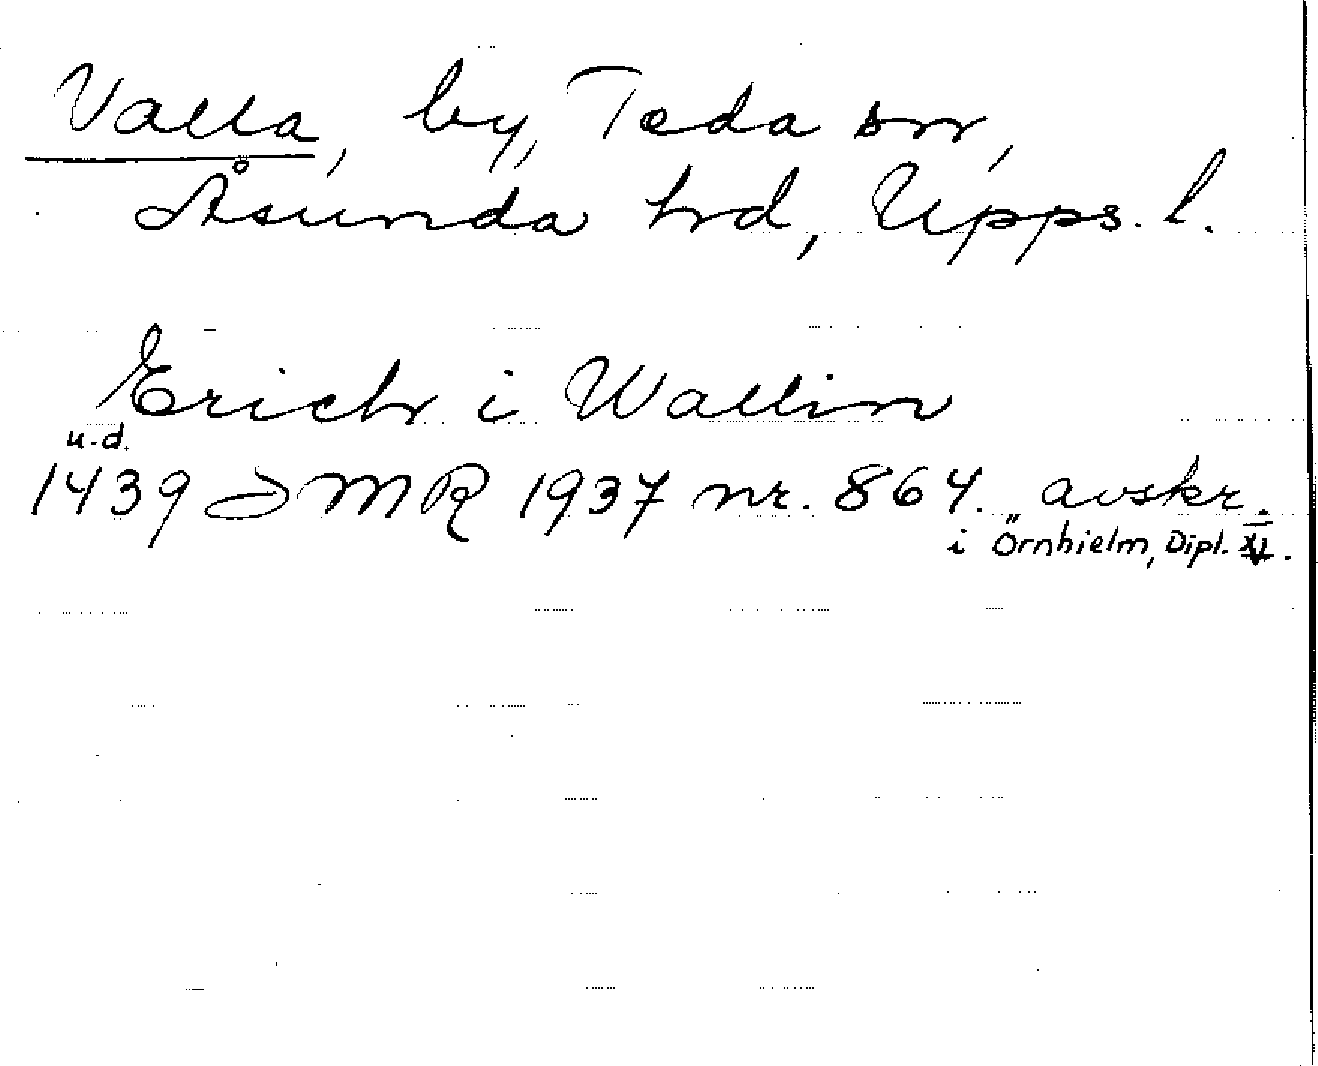 Valla, by, Teda sn,
Åsunda hrd, Upps. l.
Erich i Wallin
u.d.
1439 DMR 1937 nr. 864. avskr.
i Örnhielm, Dipl.